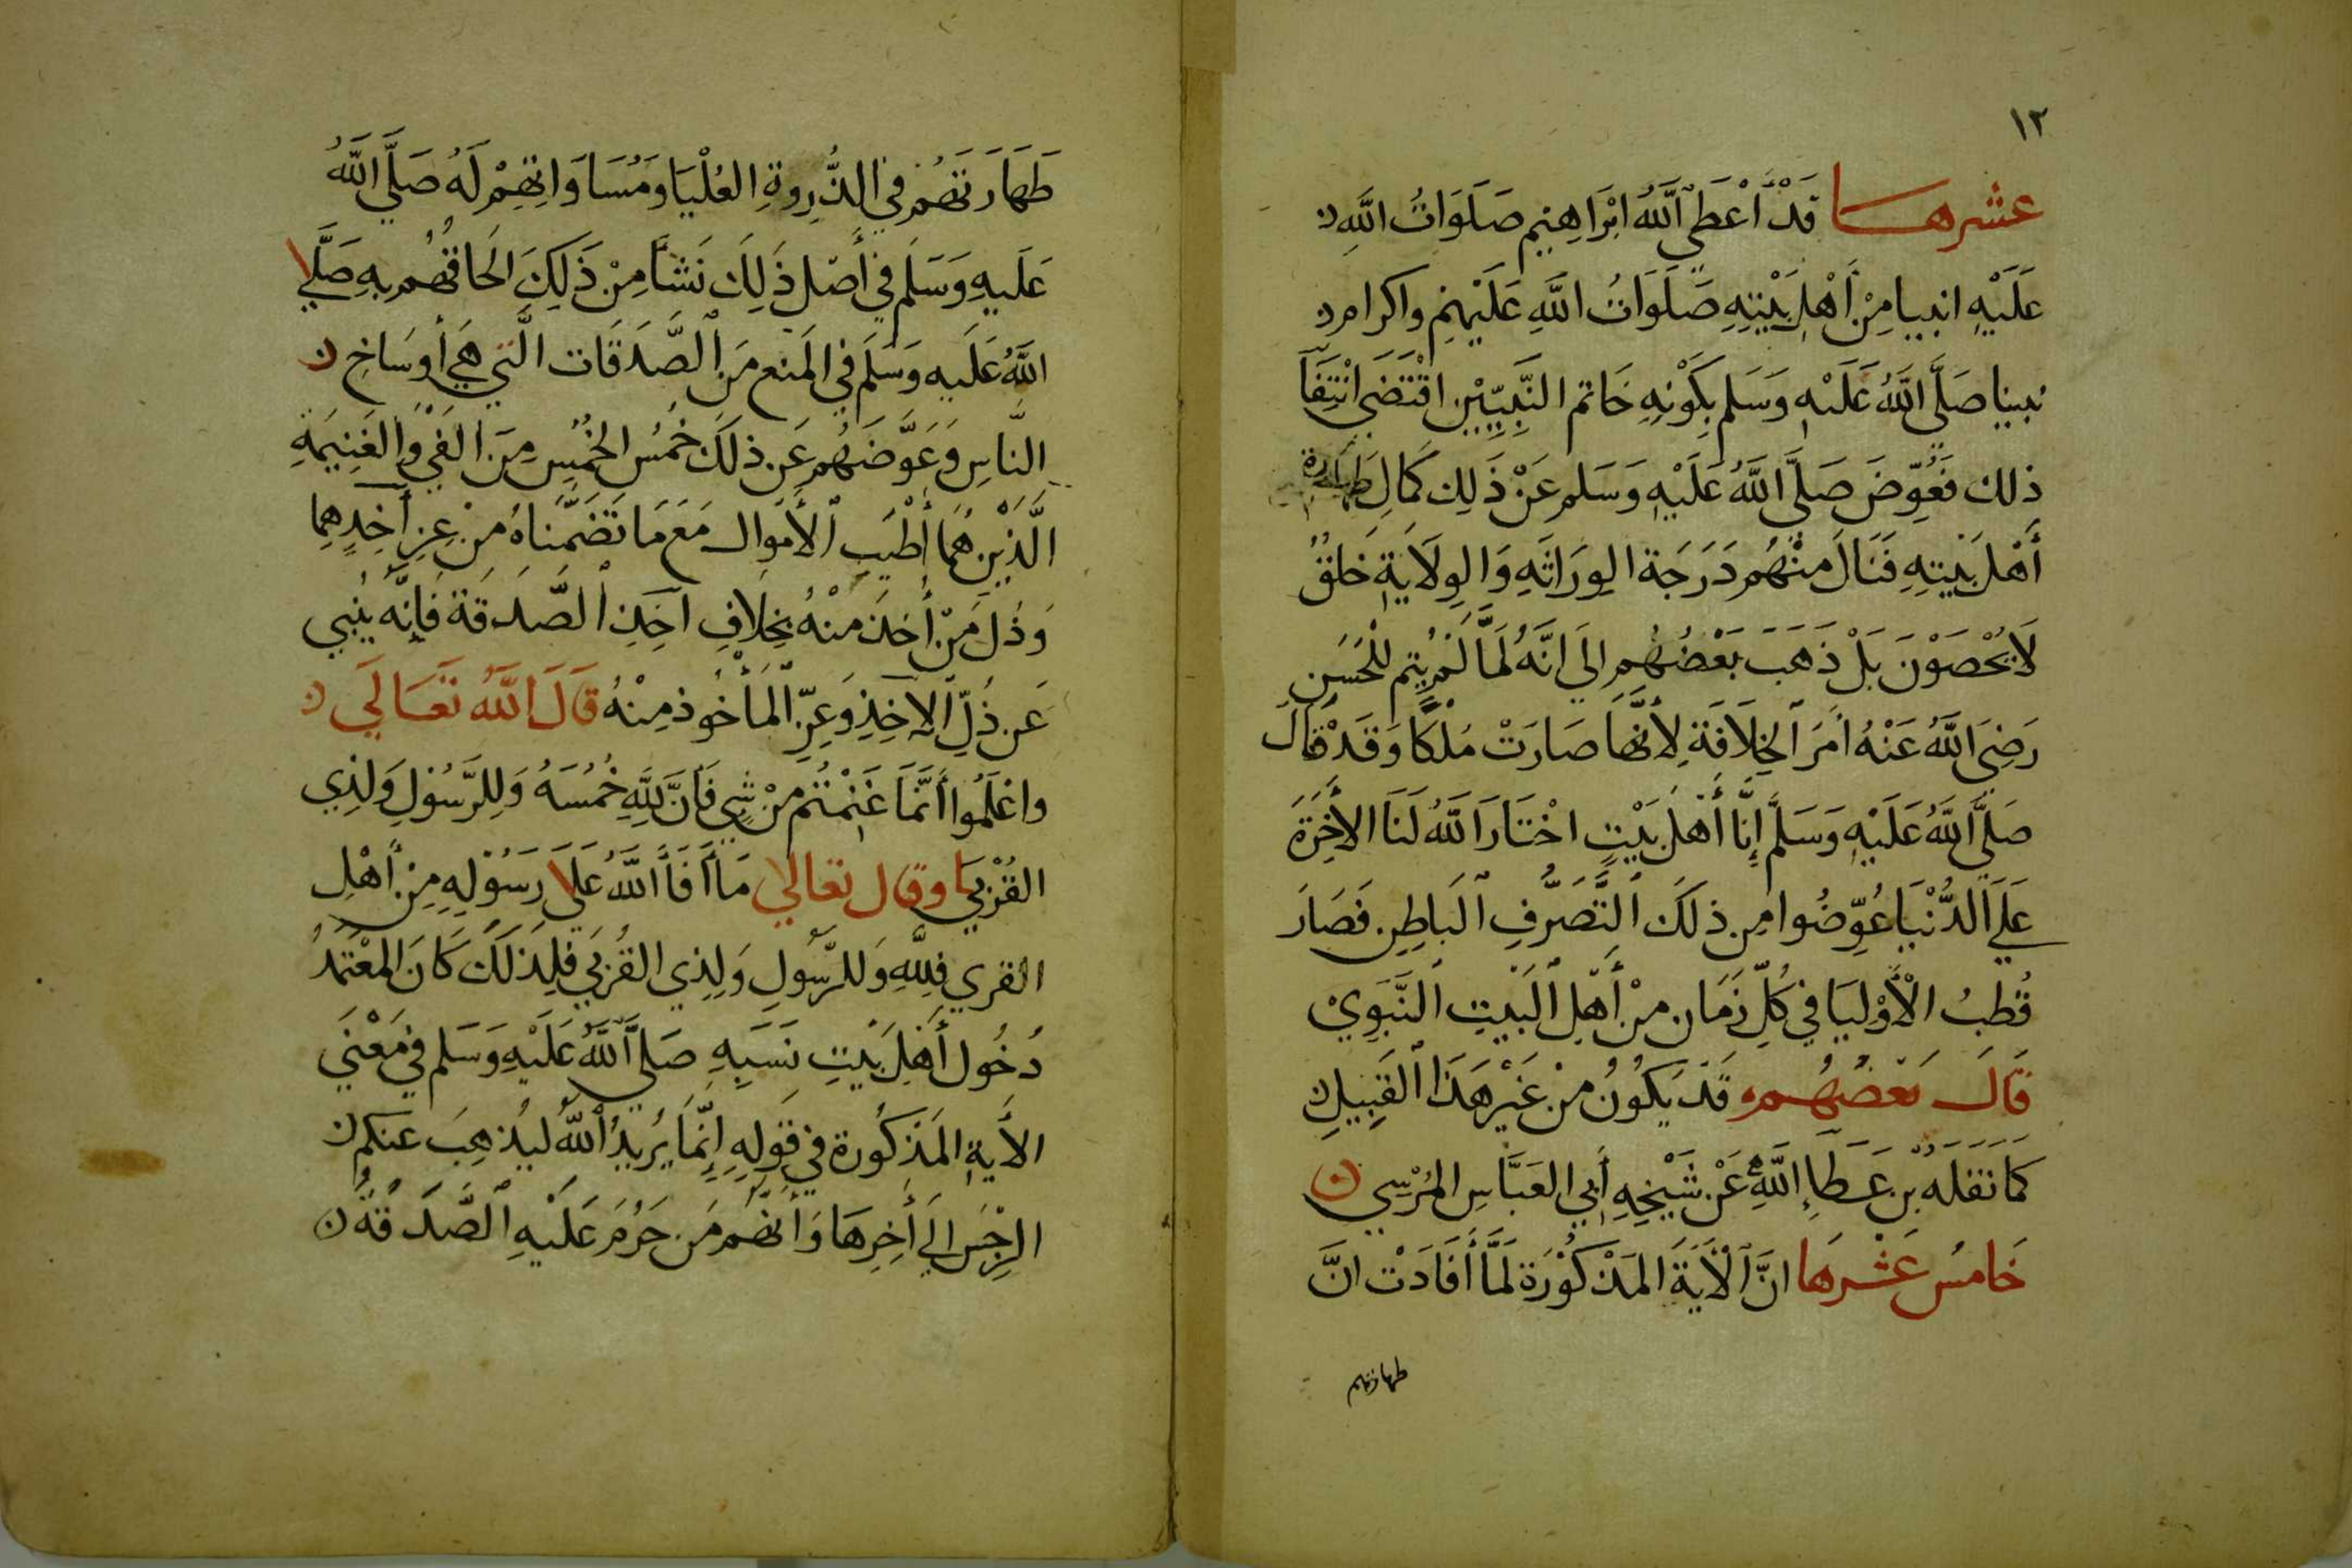 ١٢
عشرها قَدْ أَعْطَى اللَّهُ ابْرَاهِيم صَلَوَاتُ اللَّهِ
عَلَيْهِ انبيا مِنْ أَهْلِ بَيْتِهِ صَلَوَاتُ اللَّهِ عَلَيْهِم واكرام
نبينا صَلَّى اللَّهُ عَلَيْهِ وَسَلم بِكَوْنِهِ خَاتم النَّبِيّيْن اقْتَضَى انْتِفَآ
ذلك فَعُوّضَ صَلَّى اللَّهُ عَلَيْهِ وَسَلم عَنْ ذَلِك كَمَالِ طَهَارة
أَهْل بَيْتِهِ فَنَالَ مِنْهُم دَرَجَة الوِرَاثَهِ وَالوِلَايَةِ خَلقٌ
لَا يُحْصَوْنَ بَلْ ذَهَبَ بَعْضُهُم الَى انَّهُ لَمَّا لَمْ يتم لِلْحَسَن
رَضِىَ اللَّهُ عَنْهُ أمرَ الخِلَافَةِ لِأَنَّهَا صَارَتْ مُلْكًا وَقَدْ قَالَ
صَلَّى اللَّهُ عَلَيْهِ وَسَلَّم إِنَّا أَهْلَ بَيْتٍ اخْتَارَ اللَّهُ لَنَا الأَخِرَةَ
عَلَى الدُّنْيَا عُوّضُوا مِن ذلكَ التَّصَرُّفِ البَاطِن فَصَارَ
قُطبُ الأَوْليَا في كُلّ زَمَان مِنْ أَهْلِ البَيتِ النَّبَوِيْ
قَالَ بَعْضُهُم قَدْ يَكُونُ مِنْ غَيْر هَذَا القَبِيلِ
كَمَا نَقَلَهُ بْن عَطَاءِ اللَّهِ عَنْ شَيْخِهِ أَبِي العَبَّاسِ المُرْسِي
خَامسُ عَشْرهَا انَّ الأيَةَ المَذْكُوْرَة لَمَّا أَفَادَتْ انَّ
طهارتهم
طَهَارَتهُم في الذُّروةِ العُلْيَا ومُسَاوَاتِهِمْ لَهُ صَلَّى اللَّهُ
عَلَيهِ وَسَلَم فِي أَصْل ذَلِكَ نَشَأَ مِنْ ذَلِكَ الحَاقُهُم بهِ صَلَّى
اللَّهُ عَلَيه وَسَلَم فِي المَنع مَن الصَّدَقَات الَّتي هِيَ أَوسَاخِ
النَّاسِ وَعَوَّضَهُم عَن ذلكَ خُمُس الخُمُسِ مِنَ الفَيْ وَالغَنِيمَةِ
الَّذَيْن هُمَا أَطْيَبِ الأَمْوال مَعَ مَا تَضَمَّنَاهُ مِنْ عِزِ آخِذِهِما
وَذُل مَنْ أُخِذَ مِنْهُ بِخِلَافِ آخِذ الصَّدقَة فَإِنَّه يُنبي
عَن ذُلِّ الآخِذِ وَعِزّ المَأْخُوذ مِنْهُ قَالَ اللَّهُ تَعَالَى
واعْلَمُوا أَنَّمَا غَنِمْتُم مِنْ شيٍ فَأَنَّ لِلَّهِ خُمُسَهُ وَلِلرَّسُولِ وَلِذِي
القُرْبَى وقال تعالى مَا أَفَأَ اللَّهُ عَلَى رَسُوْلِهِ مِنْ أَهْلِ
القرى فلِلَّهِ وَللرَّسُولِ وَلِذِي القُرْبَي فَلِذَلكَ كَانَ المعْتَمَدُ
دُخُول أَهْلِ بَيْتِ نَسَبِهِ صَلَّى اللَّهُ عَلَيْهِ وَسَلم فِي مَعْنَي
الأَيَةِ المَذكُورة في قَولِهِ إِنَّمَا يُرِيدُ اللَّهُ ليُذهِبَ عنكم
الرِجْسَ الَي أَخِرِهَا وَأَنهُم مَن حَرُمَ عَلَيْهِ الصَّدَقَةُ